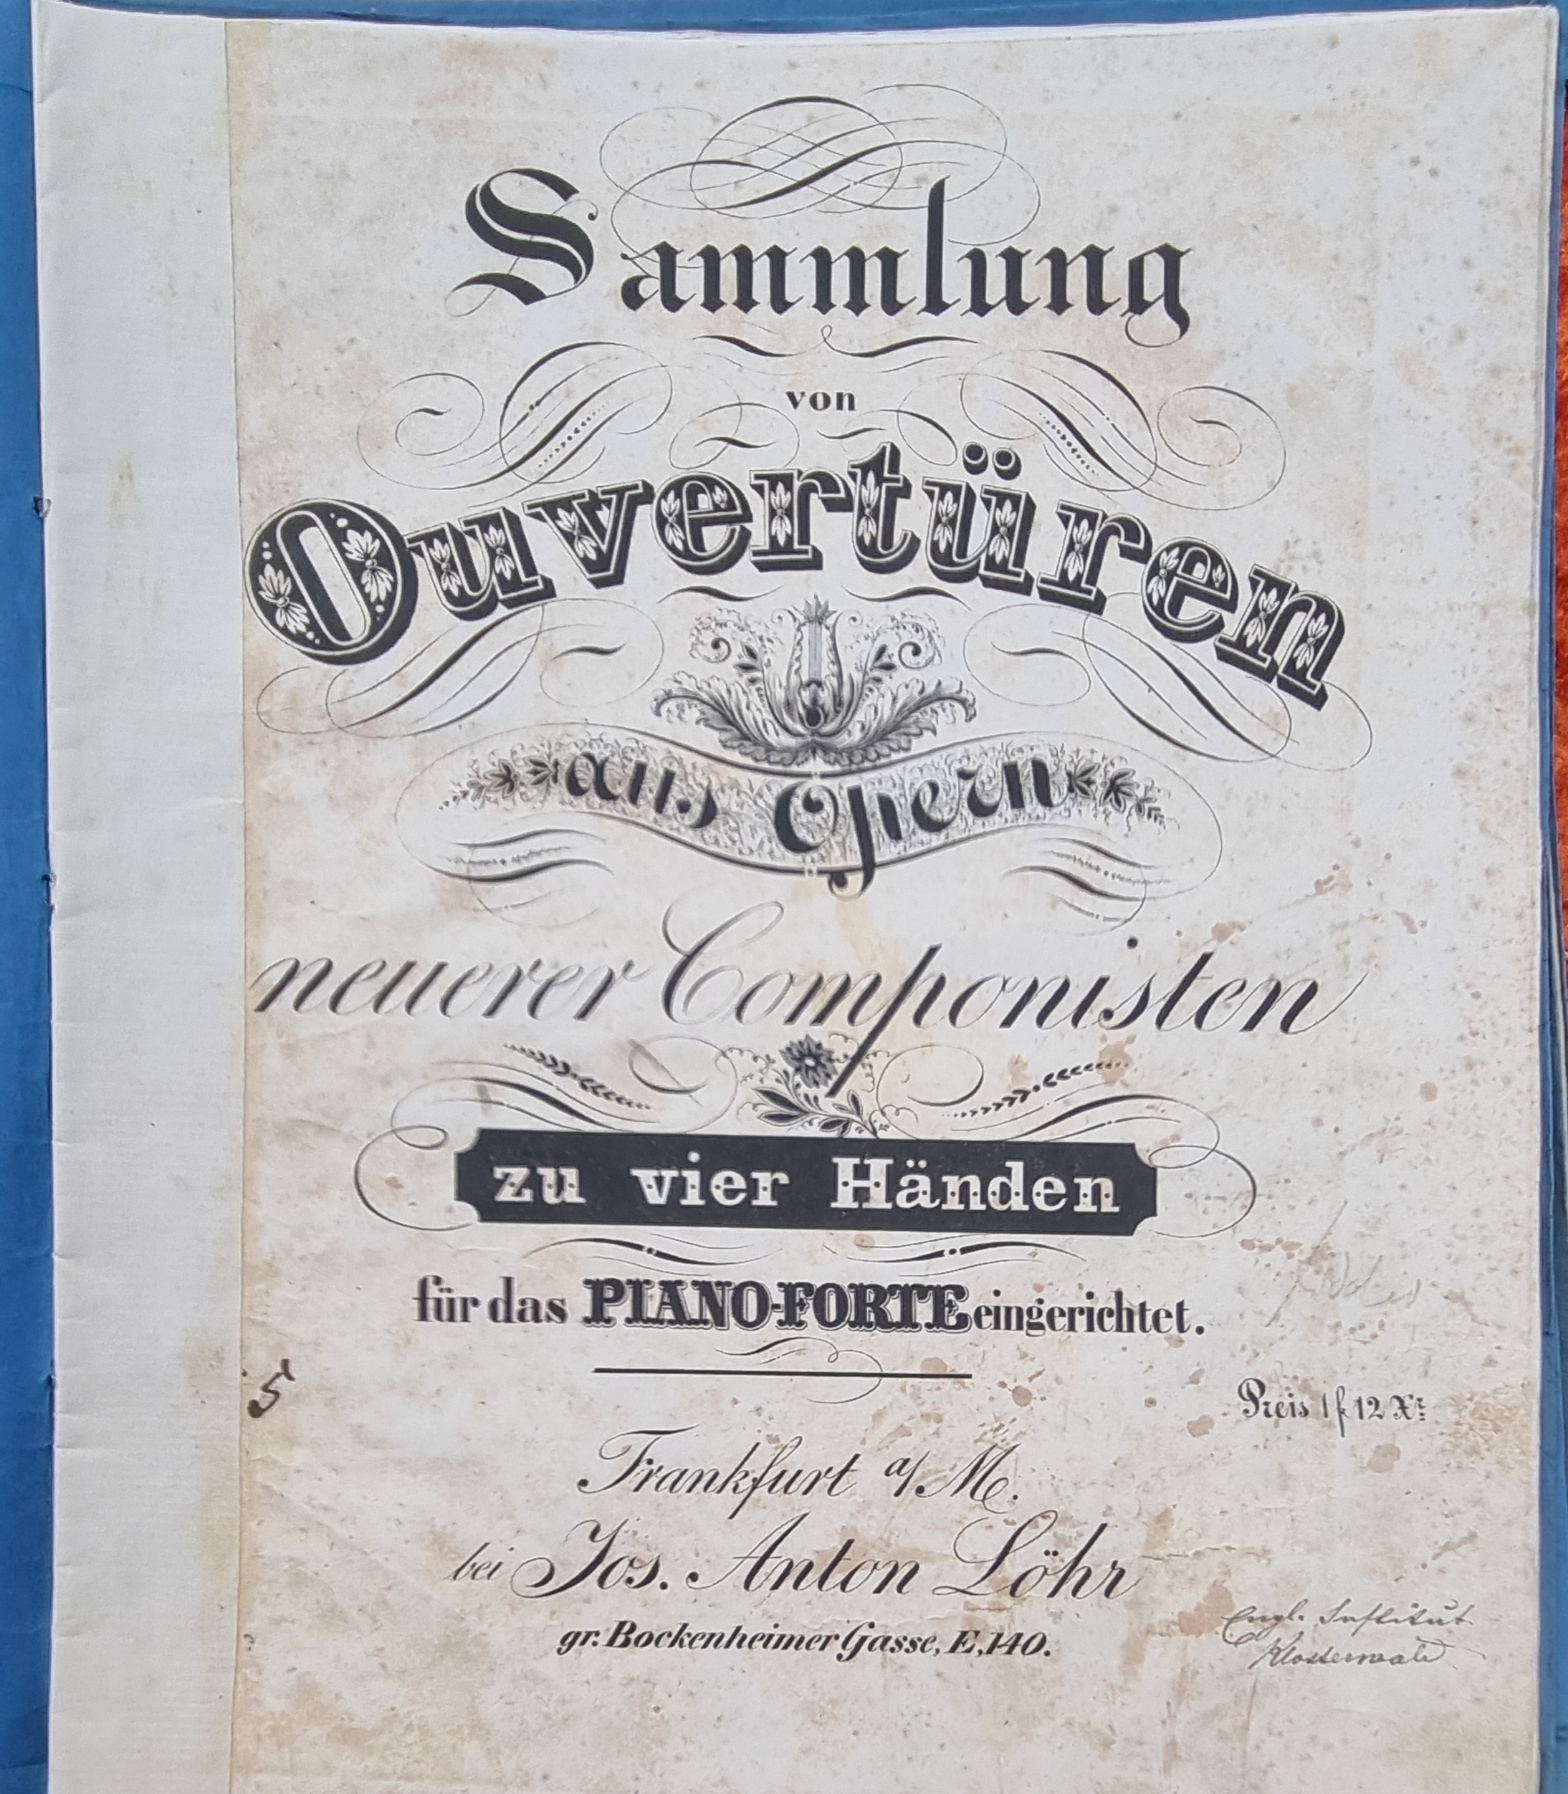 Sammlung
von
Ouvertüren
aus Opern
neuerer Componisten
zu vier Händen
für das PIANO-FORTE eingerichtet.
5
Preis 1 f 12 Xr
Frankfurt a/M.
bei Jos. Anton Löhr
gr. Bockenheimer Gasse, E, 140.
Engl. Institut
Klosterwald